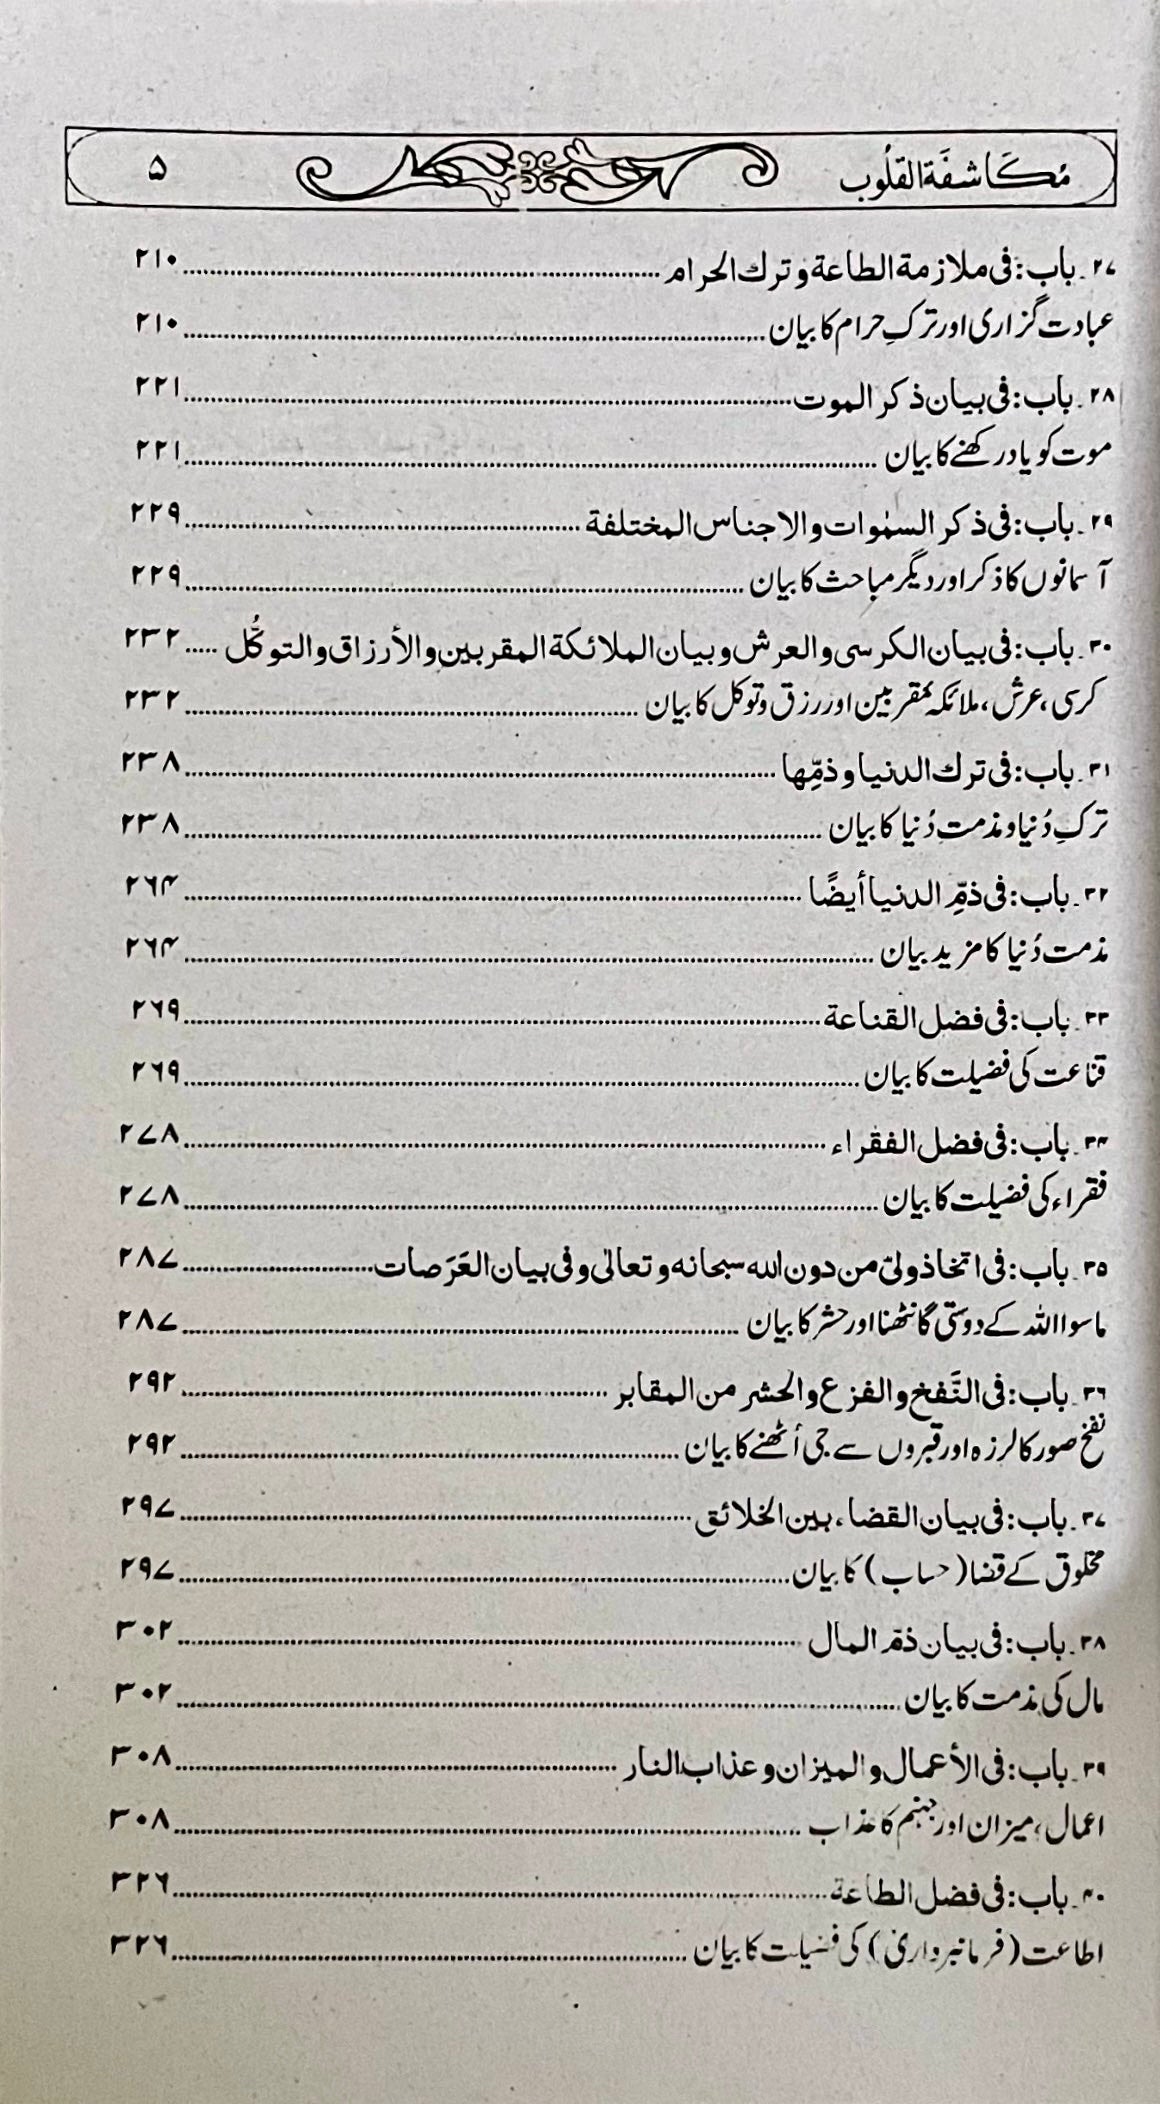 مُكَاشفَةالقلُوب ۵
۲۷۔ باب: فی ملازمة الطاعة و ترك الحرام ۲۱۰
عبادت گزاری اور ترکِ حرام کا بیان ۲۱۰
۲۸۔ باب: فی بیان ذکر الموت ۲۲۱
موت کو یاد رکھنے کا بیان ۲۲۱
۲۹۔ باب: فی ذکر السمٰوات والاجناس المختلفة ۲۲۹
آسمانوں کا ذکر اور دیگر مباحث کا بیان ۲۲۹
۳۰۔ باب: فی بیان الکرسی والعرش و بیان الملائکة المقربین والأرزاق والتوکُّل ۲۳۲
کرسی، عرش، ملائکہ مقربین اور رزق و توکل کا بیان ۲۳۲
۳۱۔ باب: فی ترك الدنیا و ذمِّها ۲۳۸
ترکِ دُنیا و مذمتِ دُنیا کا بیان ۲۳۸
۳۲۔ باب: فی ذمِّ الدنیا أیضًا ۲۶۴
مذمت دُنیا کا مزید بیان ۲۶۴
۳۳۔ باب: فی فضل القناعة ۲۶۹
قناعت کی فضیلت کا بیان ۲۶۹
۳۴۔ باب: فی فضل الفقراء ۲۷۸
فقراء کی فضیلت کا بیان ۲۷۸
۳۵۔ باب: فی اتخاذ ولیّ من دون الله سبحانه و تعالیٰ و فی بیان العَرَصات ۲۸۷
ماسوا اللہ کے دوستی گانٹھنا اور حشر کا بیان ۲۸۷
۳۶۔ باب: فی النَّفخ والفزع والحشر من المقابر ۲۹۲
نفخ صور کا لرزہ اور قبروں سے جی اُٹھنے کا بیان ۲۹۲
۳۷۔ باب: فی بیان القضاء بین الخلائق ۲۹۷
مخلوق کے قضا (حساب) کا بیان ۲۹۷
۳۸۔ باب: فی بیان ذمّ المال ۳۰۲
مال کی مذمت کا بیان ۳۰۲
۳۹۔ باب: فی الأعمال والمیزان و عذاب النار ۳۰۸
اعمال، میزان اور جہنم کا عذاب ۳۰۸
۴۰۔ باب: فی فضل الطاعة ۳۲۶
اطاعت (فرمانبرداری) کی فضیلت کا بیان ۳۲۶